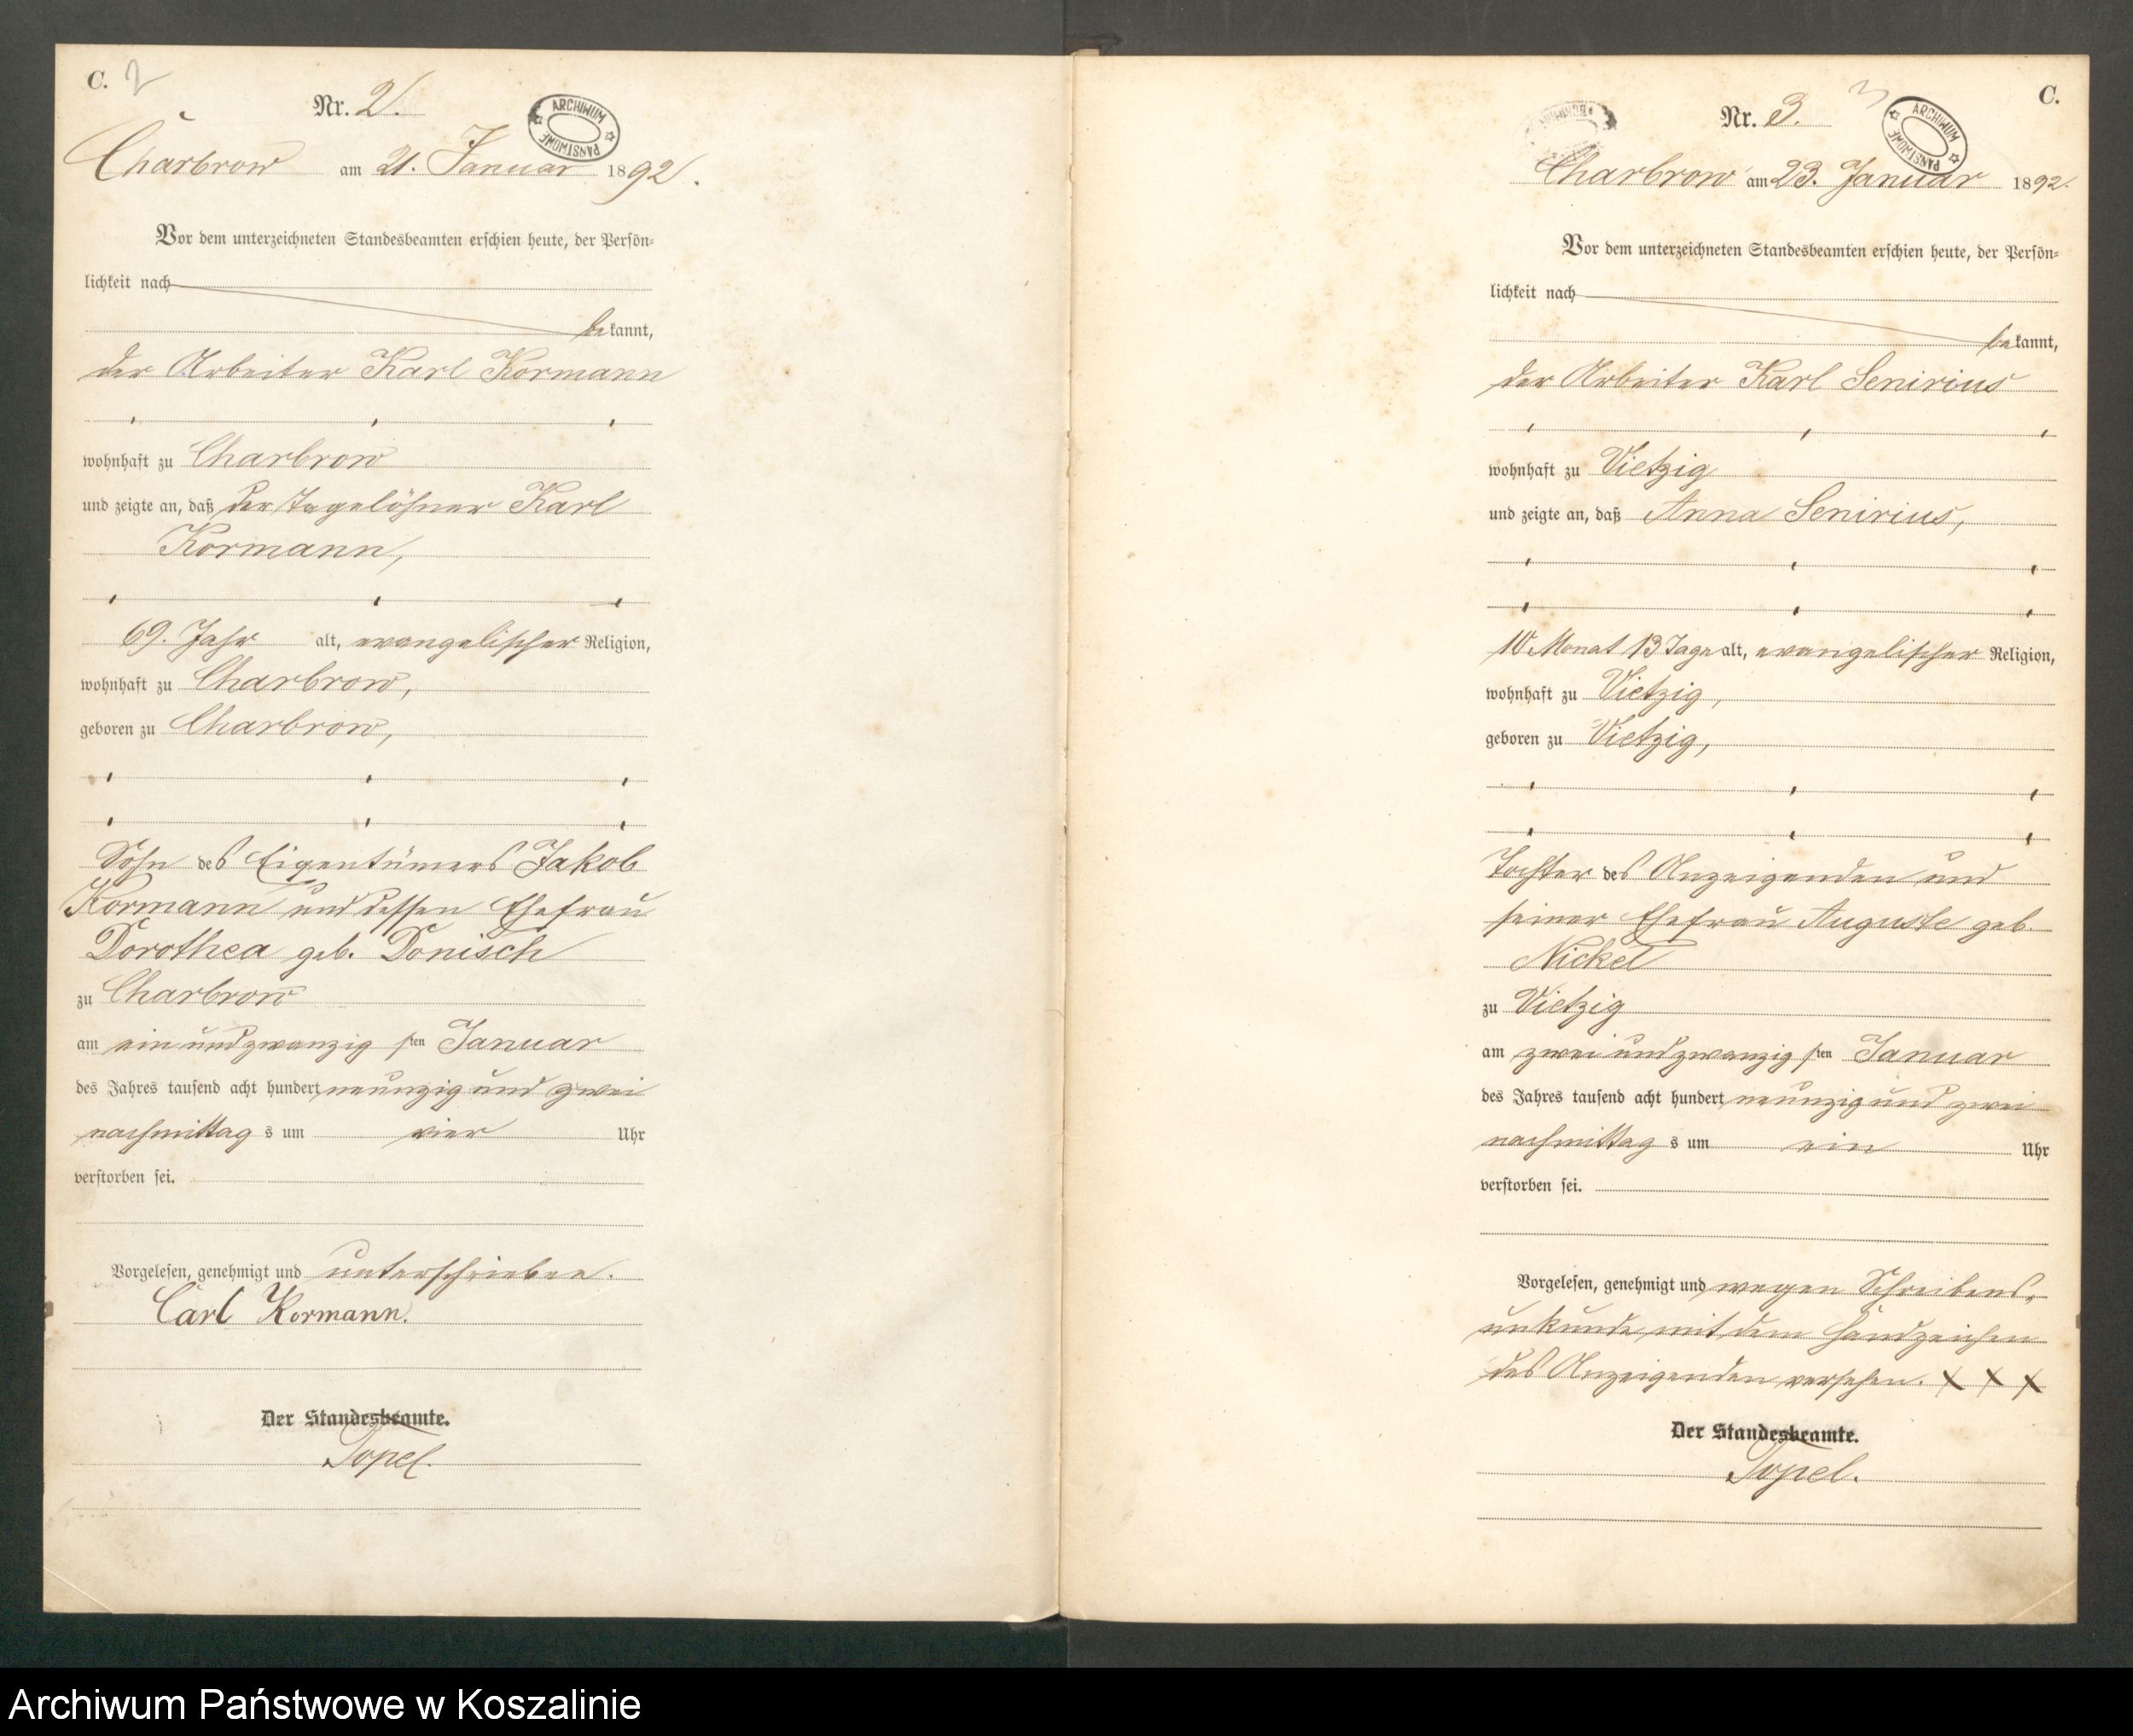 C. 2
Nr. 2.
ARCHIWUM PAŃSTWOWE
Charbrow am 21. Januar 1892.
Vor dem unterzeichneten Standesbeamten erschien heute, der Persön-
lichkeit nach
bekannt,
der Arbeiter Karl Kormann
wohnhaft zu Charbrow
und zeigte an, daß der Tagelöhner Karl
Kormann,
69. Jahr alt, evangelischer Religion,
wohnhaft zu Charbrow,
geboren zu Charbrow,
Sohn des Eigentümers Jakob
Kormann und dessen Ehefrau
Dorothea geb. Donisch
zu Charbrow
am ein und zwanzig sten Januar
des Jahres tausend acht hundert neunzig und zwei
nachmittag s um vier Uhr
verstorben sei.
Vorgelesen, genehmigt und unterschrieben.
Carl Kormann.
Der Standesbeamte.
Topel.
C.
3
Nr. 3.
ARCHIWUM PAŃSTWOWE
Charbrow am 23. Januar 1892.
Vor dem unterzeichneten Standesbeamten erschien heute, der Persön-
lichkeit nach
bekannt,
der Arbeiter Karl Senirius
wohnhaft zu Vietzig
und zeigte an, daß Anna Senirius,
10 Monat 13 Tage alt, evangelischer Religion,
wohnhaft zu Vietzig,
geboren zu Vietzig,
Tochter des Anzeigenden und
seiner Ehefrau Auguste geb.
Nickel
zu Vietzig
am zwei und zwanzig sten Januar
des Jahres tausend acht hundert neunzig und zwei
nachmittag s um ein Uhr
verstorben sei.
Vorgelesen, genehmigt und wegen Schreibens-
unkunde mit dem Handzeichen
des Anzeigenden versehen. X X X
Der Standesbeamte.
Topel.
Archiwum Państwowe w Koszalinie